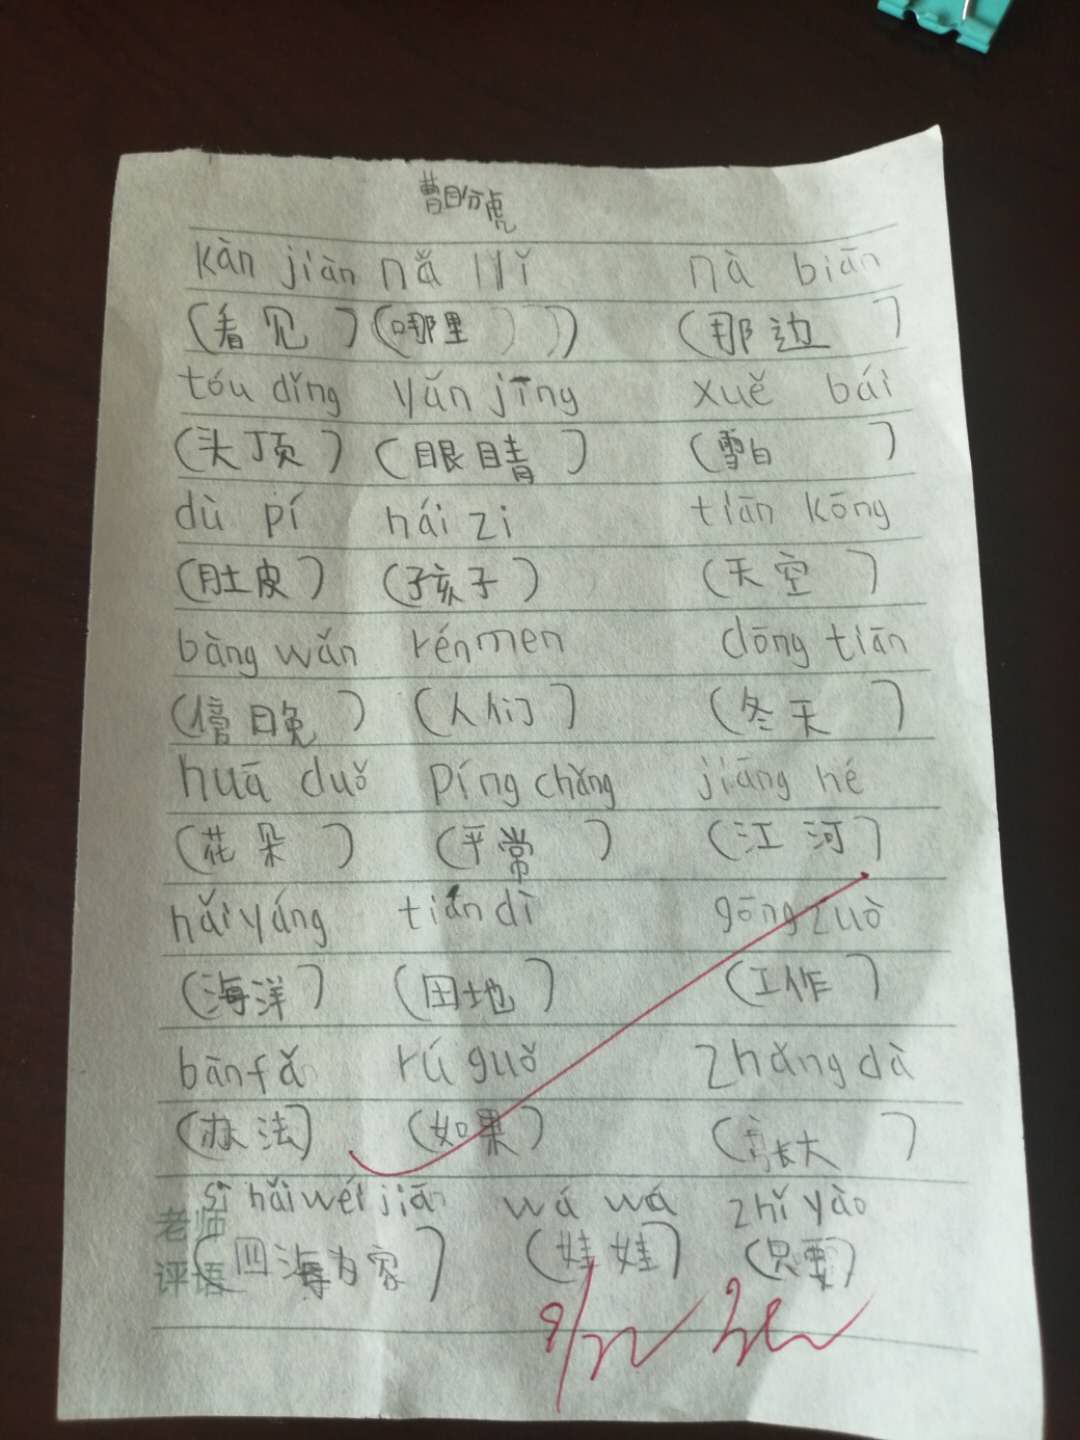 曹盼虎
kàn jiàn nǎ lǐ nà biān
(看见) (哪里) (那边)
tóu dǐng yǎn jīng xuě bái
(头顶) (眼睛) (雪白)
dù pí hái zi tiān kōng
(肚皮) (孩子) (天空)
bàng wǎn rén men dōng tiān
(傍晚) (人们) (冬天)
huā duǒ píng cháng jiāng hé
(花朵) (平常) (江河)
hǎi yáng tián dì gōng zuò
(海洋) (田地) (工作)
bān fǎ rú guǒ zhǎng dà
(办法) (如果) (长大)
sì hǎi wéi jiā wá wá zhǐ yào
(四海为家) (娃娃) (只要)
老师
评语
9/22